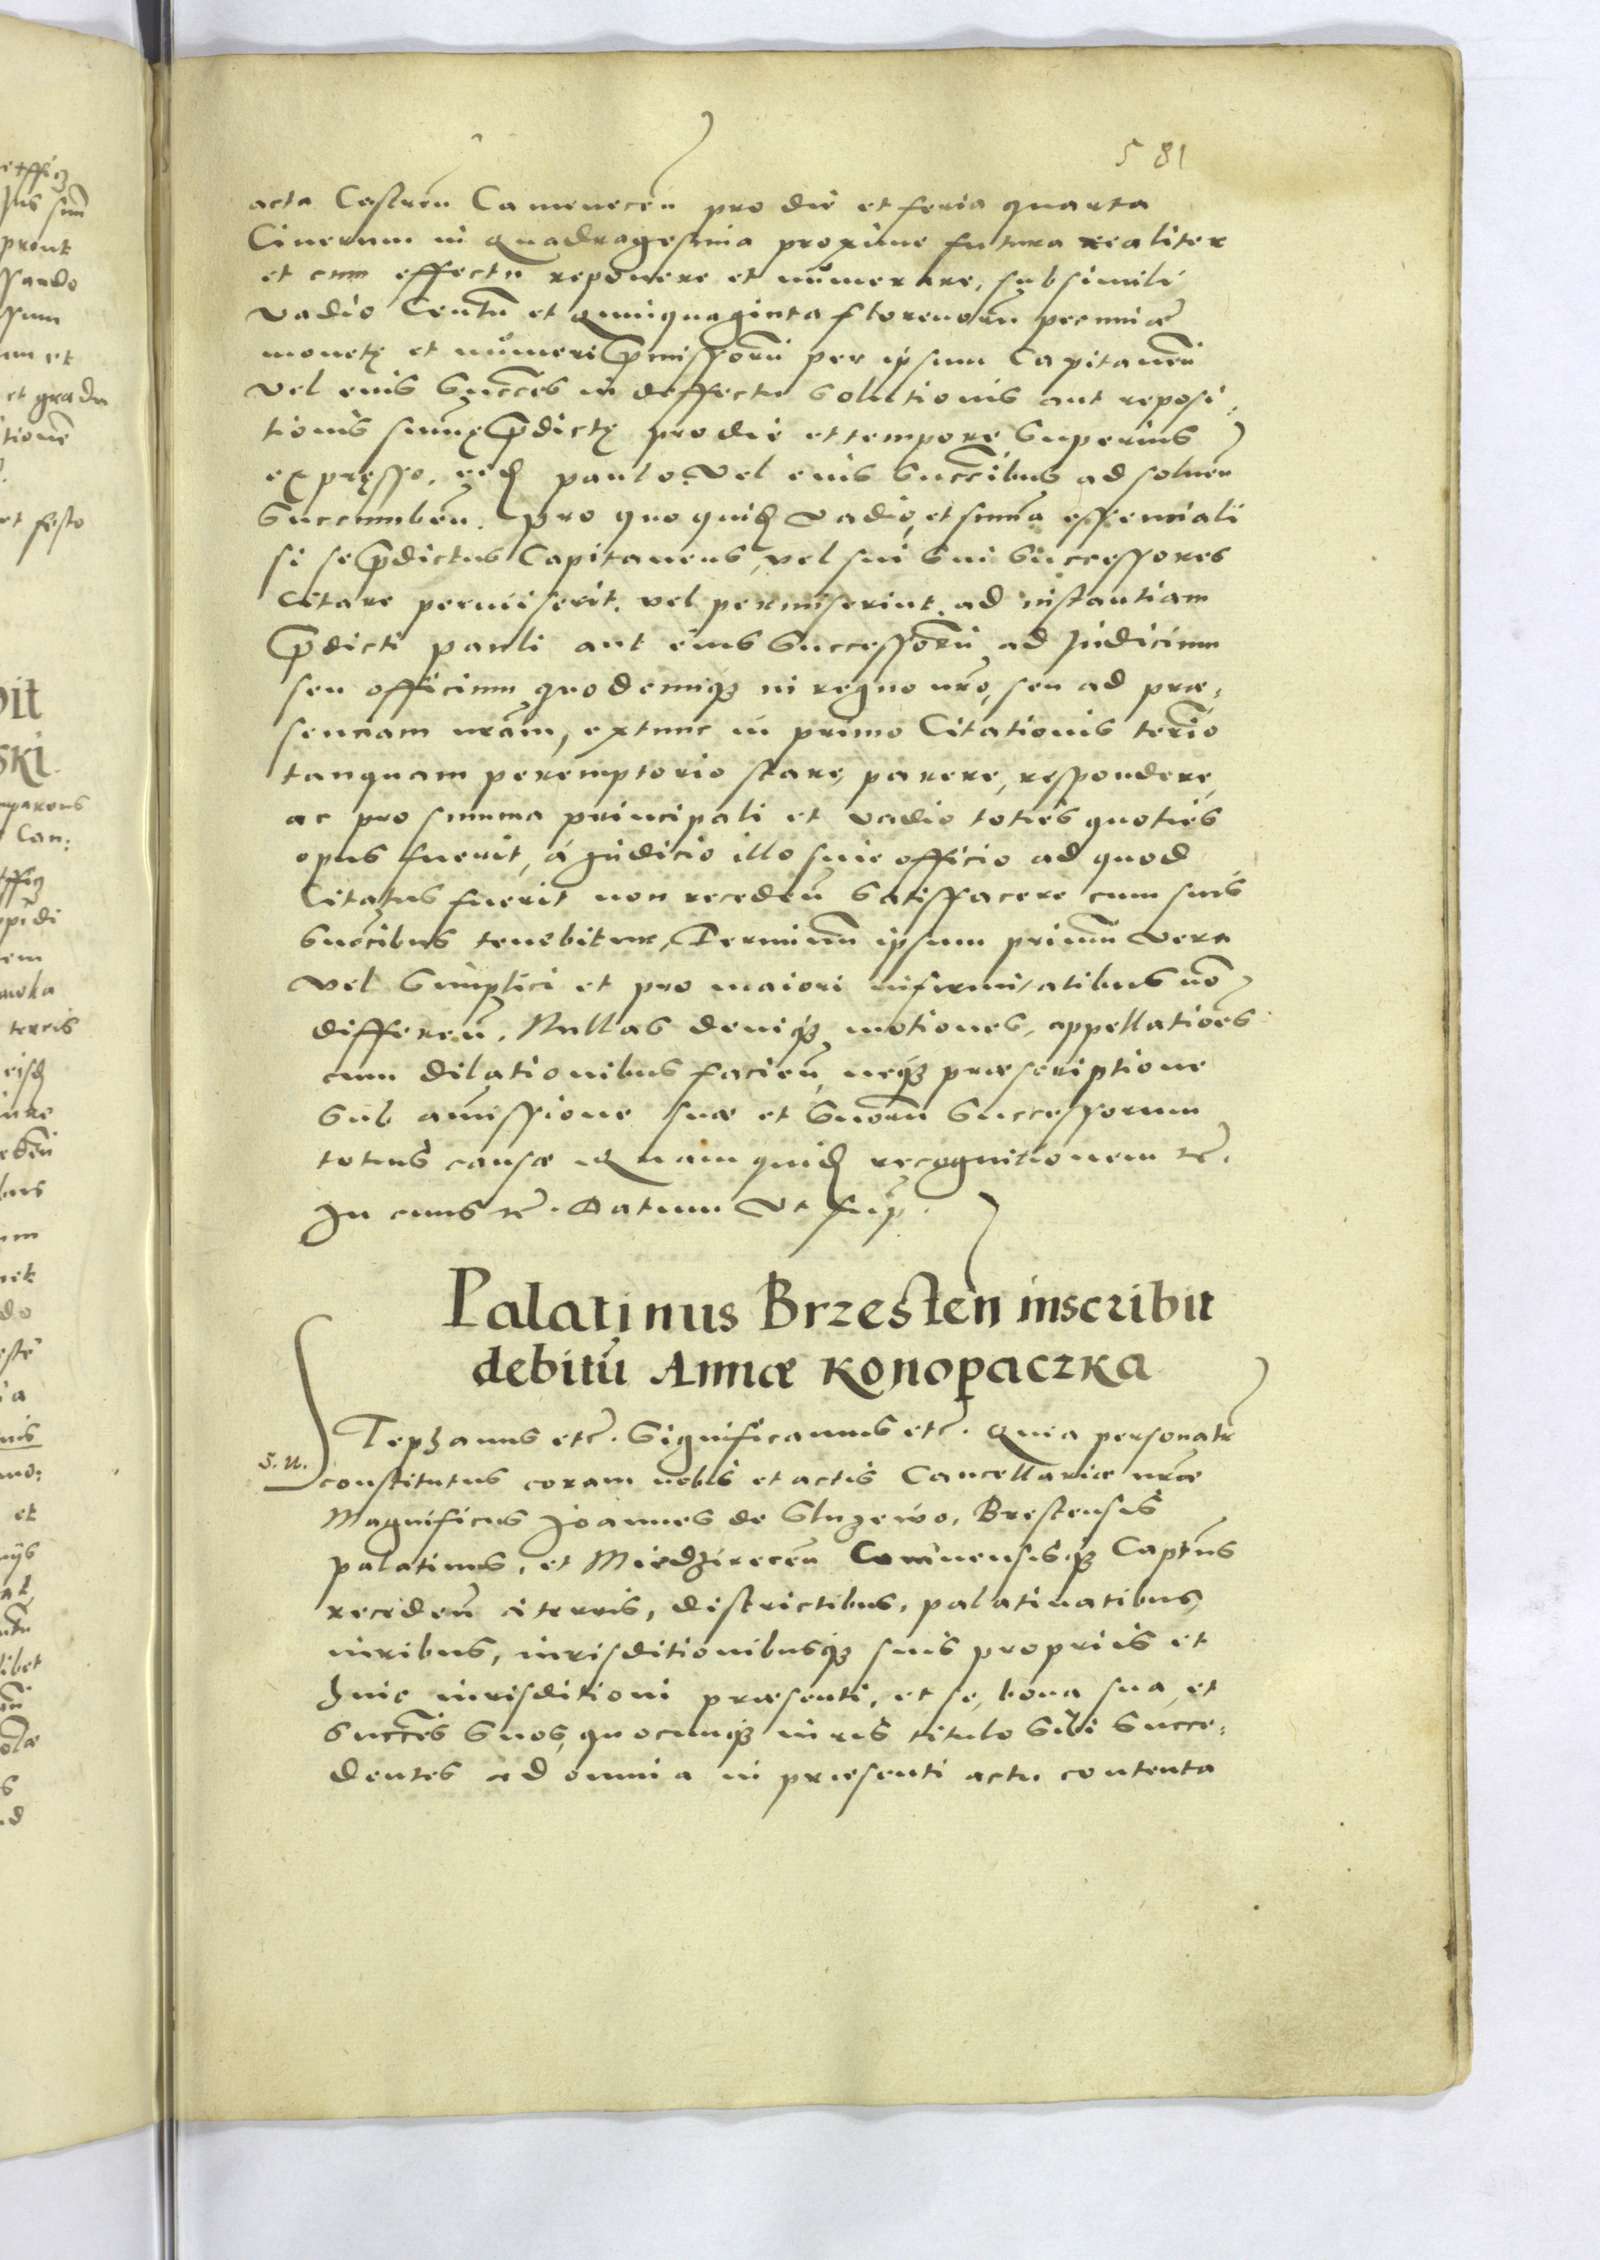 581
acta Castreñ Camenecen̄ pro die et feria quarta
Cinerum in Quadragesima proxime futura realiter
et cum effectu reponere et numerare, sub simili
vadio Centū et quinquaginta florenorū pecuniæ
monetę et numeri p̄missorū per ipsum Capitaneū
vel eius Succēs in deffectu solutionis aut reposi:
tionis summę p̄dictę pro die et tempore superius
expręsso, eid paulo vel eius Succribus ad soluen̄
Succumben̄. Pro quo quid vadio, et summa essenciali
si se p̄dictus Capitaneus, vel sui sui Successores
Citare permiserit, vel permiserint, ad instantiam
p̄dicti pauli aut eius Successorū, ad Judicium
seu officium quodcunq; in regno nrō, seu ad præ,
senciam nrām, extunc in primo Citationis terīo
tanquam peremptorio stare, parere, respondere,
ac pro summa principali et vadio toties quoties
opus fuerit, á Judicio illo siue officio ad quod
Citatus fuerit non receden̄ satisfacere cum suis
succībus tenebitur, Terminum ipsum primum vera
vel simplici et pro maiori infirmitatibus nō
differen̄. Nullas deniq; motiones, appellatioēs
cum dilationibus facien̄, neq; præscriptione
sub amissione suæ et suorū Successorum
totius causæ Quam quid recognitionem etc̄.
In cuius etc̄. Datum Vt sup.
Palatinus Brzesten inscribit
debitū Annæ Konopaczka
S. u.
Tephanus etc̄. Significamus etc̄. Quia personatr
constitutus coram nobis et actis Cancellariæ nræ
Magnificus Joannes de Sluzewo, Brestensis
palatinus, et Miedzirecen̄ Coninensisq; Captn̄s
receden̄ á terris, districtibus, palatinatibus,
iuribus, iurisditionibusq; suis propriis et
huic iurisditioni præsenti, et se, bona sua et
succēs suos, quocunq; iuris titulo sibi Succe:
dentes ad omnia in præsenti actu contenta